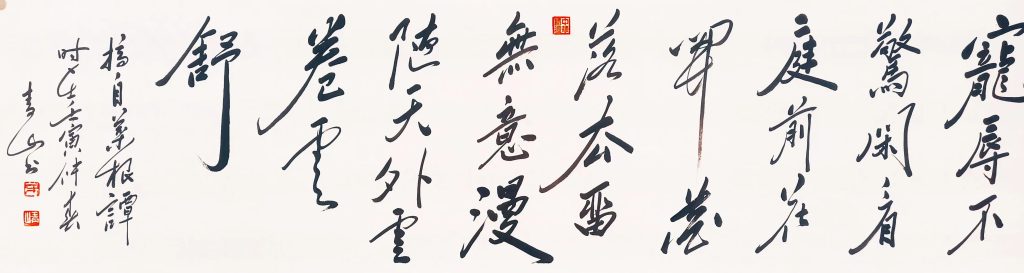 寵辱不
驚閑看
庭前花
開花
落去留
無意漫
随天外雲
卷雲
舒
摘自菜根譚
时在壬寅仲春
青山书